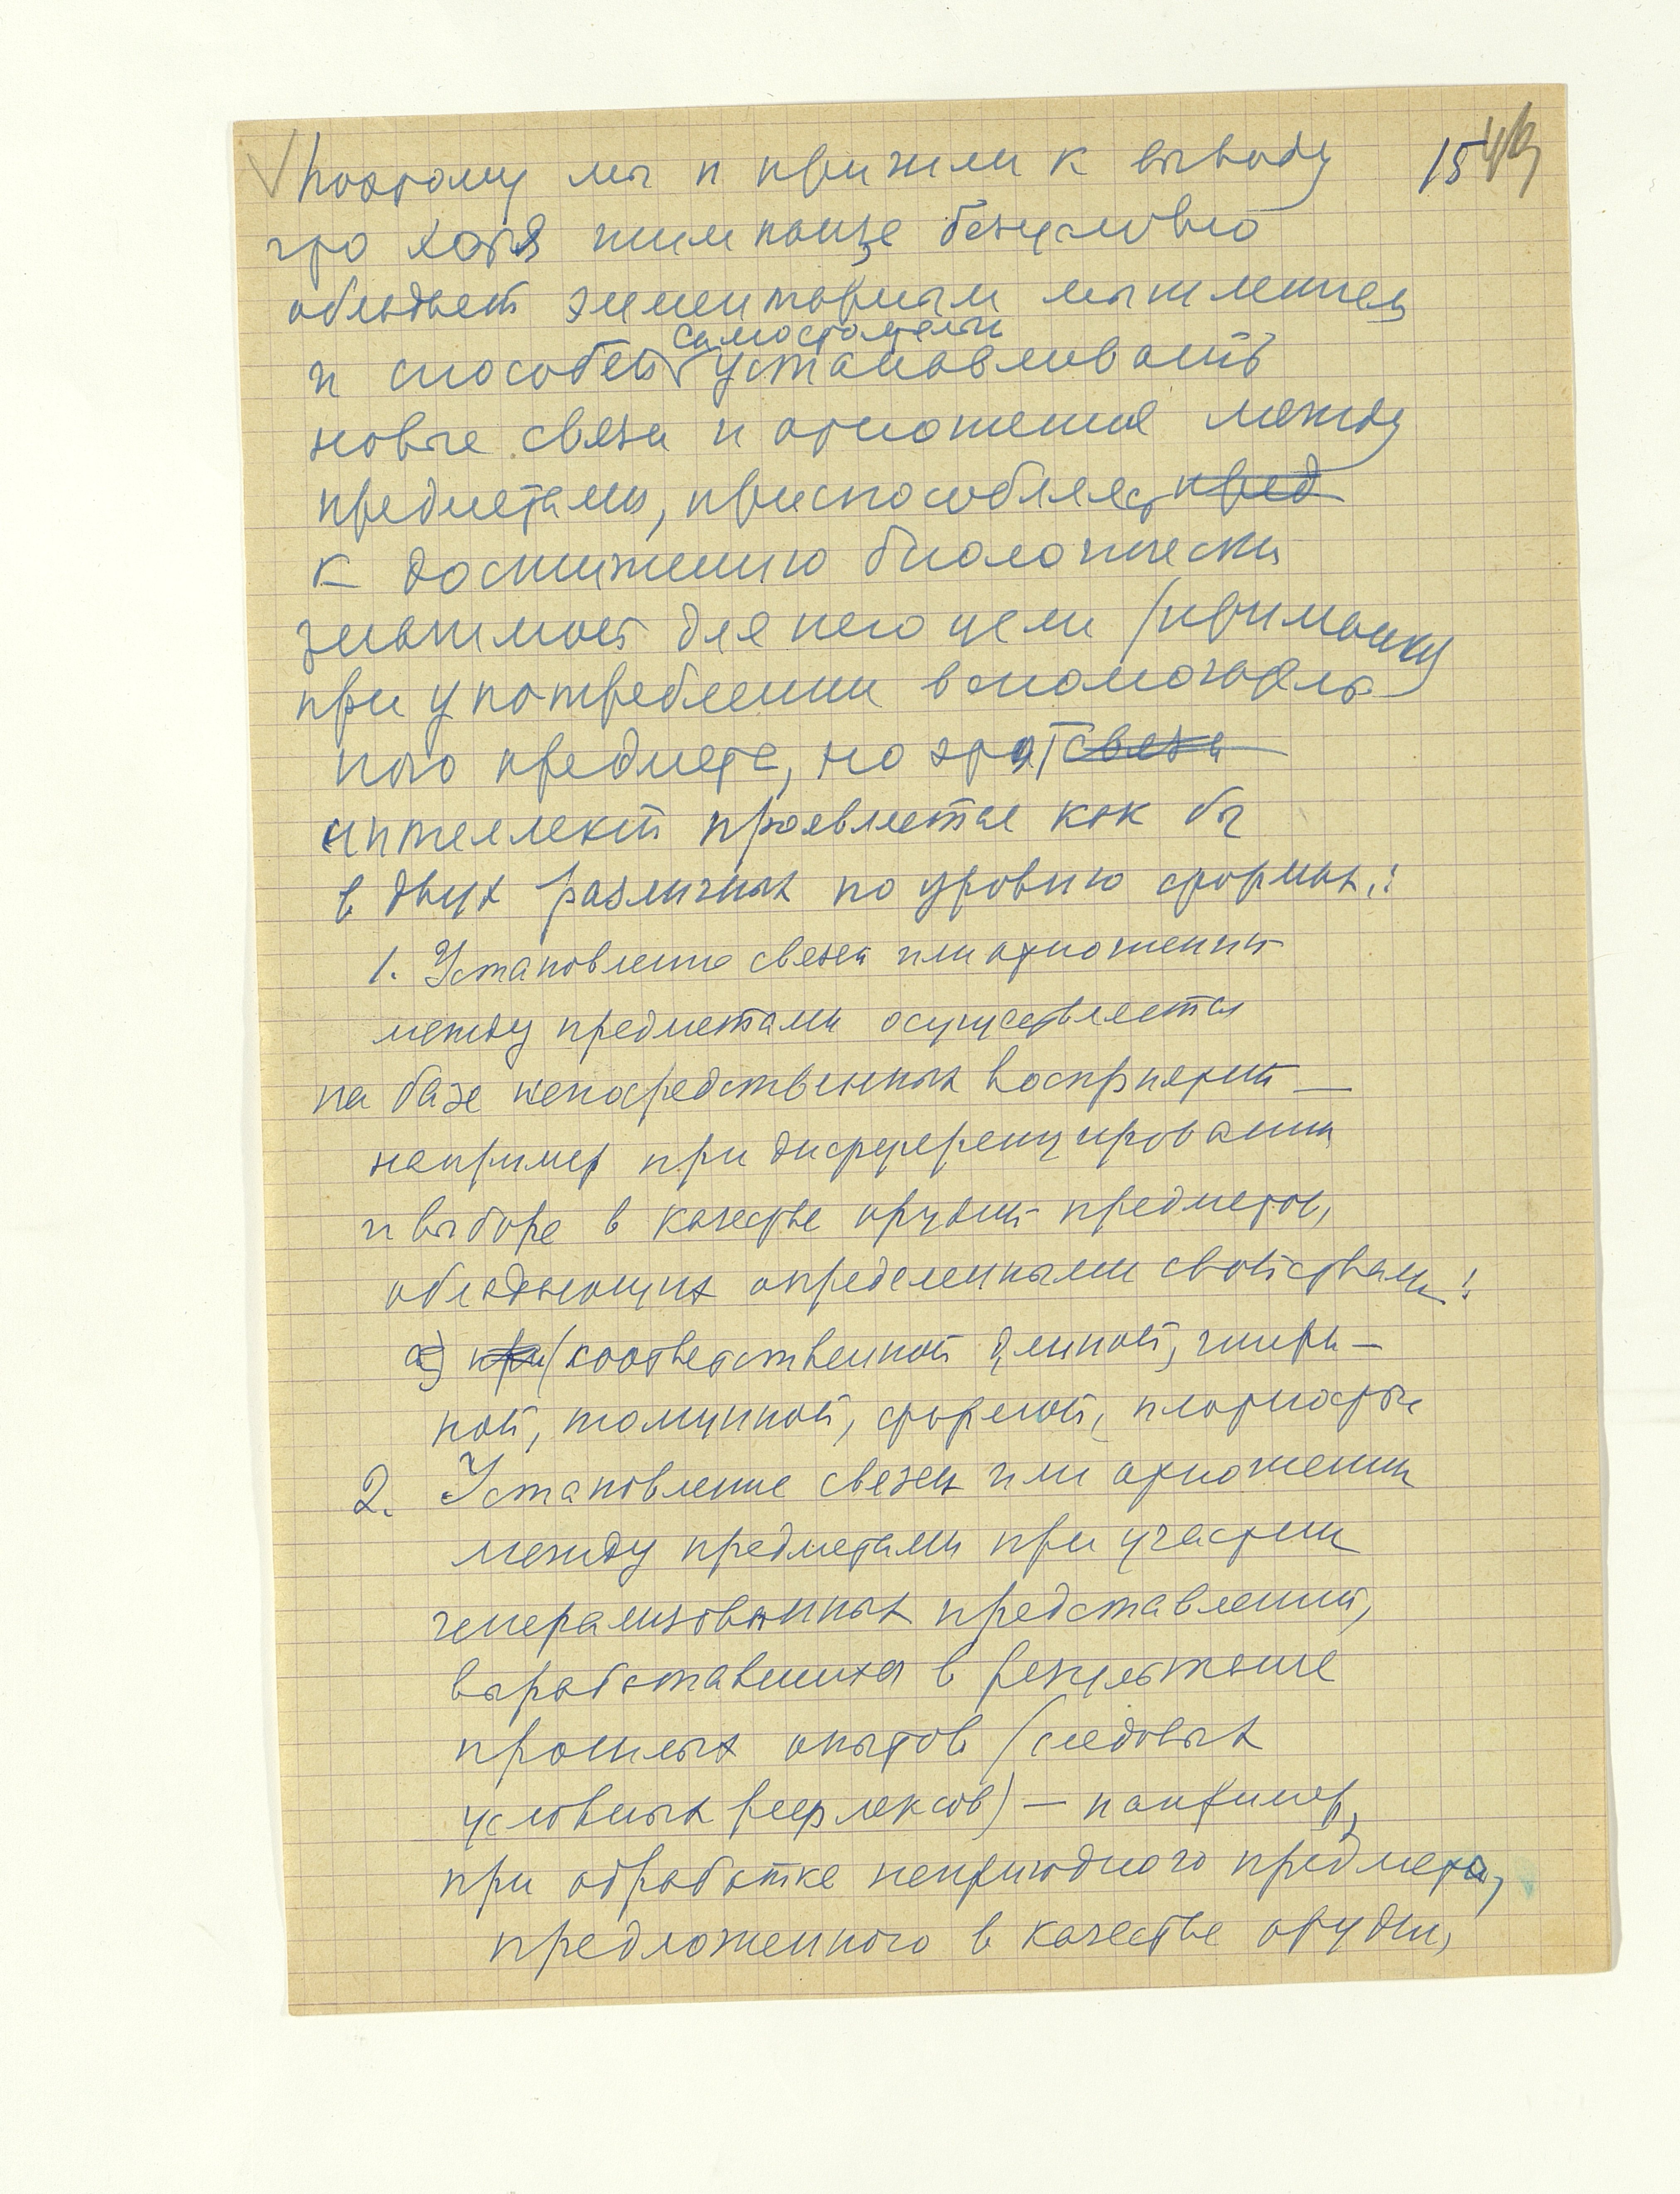 Поэтому мы и пришли к выводу 15
что хотя шимпанзе безусловно
обладает элементарным мышлением
самостоятельно
и способен устанавливать
новые связи и отношения между
предметами, приспособляясь пред
к достижению биологически
значимой для него цели (приманки
при употреблении вспомогатель
ного предмета, но этот связи
интеллект проявляется как бы
в двух различных по уровню формах:
1. Установление связей или отношений
между предметами осуществляется
на базе непосредственных восприятий —
например при дифференцировании
и выборе в качестве орудий предметов,
обладающих определенными свойствами:
а) при (соответственной длиной, шири-
ной, толщиной, формой, плотностью
2. Установление связей или отношений
между предметами при участии
генерализованных представлений,
выработавшихся в результате
прошлых опытов (следовых
условных рефлексов) — например,
при обработке непригодного предмета,
предложенного в качестве орудия,